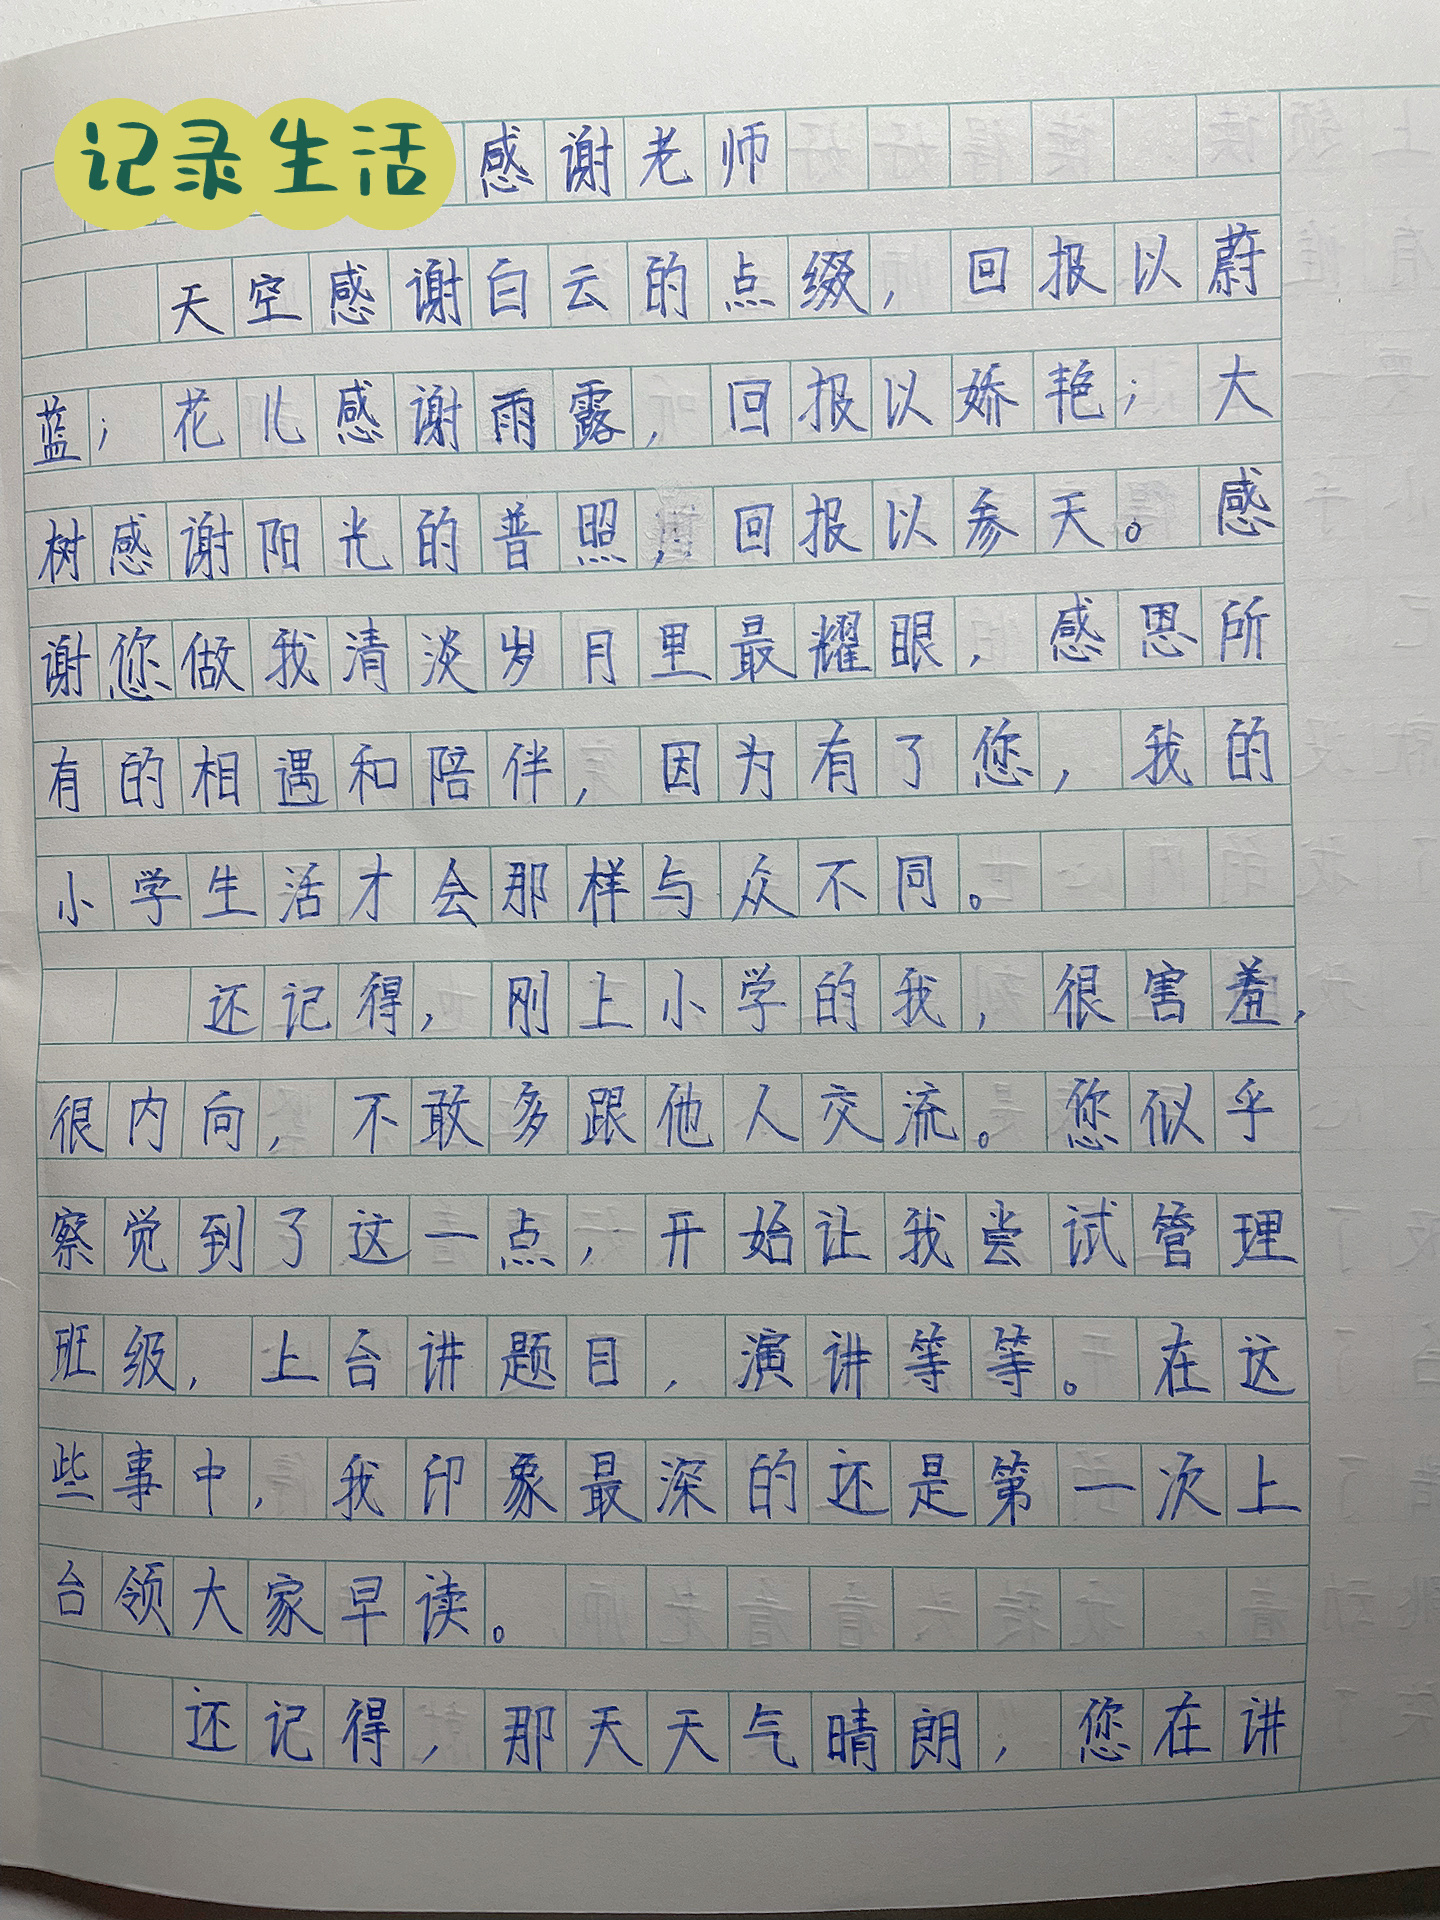 记录生活
感谢老师
天空感谢白云的点缀，回报以蔚
蓝；花儿感谢雨露，回报以娇艳；大
树感谢阳光的普照，回报以参天。感
谢您做我清淡岁月里最耀眼，感恩所
有的相遇和陪伴，因为有了您，我的
小学生活才会那样与众不同。
还记得，刚上小学的我，很害羞，
很内向，不敢多跟他人交流。您似乎
察觉到了这一点，开始让我尝试管理
班级，上台讲题目，演讲等等。在这
些事中，我印象最深的还是第一次上
台领大家早读。
还记得，那天天气晴朗，您在讲